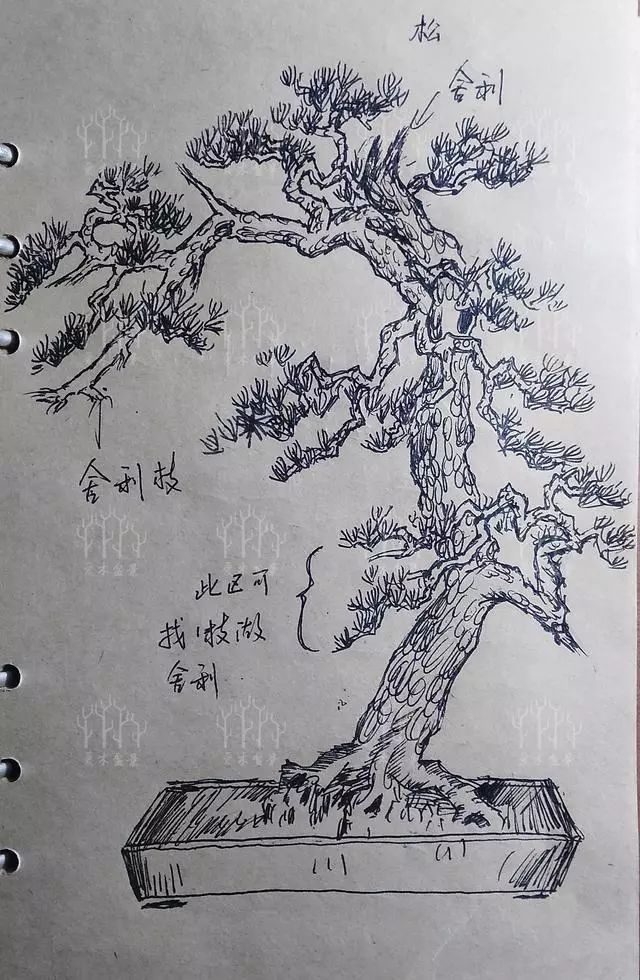 松
舍利
舍利枝
此区可
找1枝做
舍利